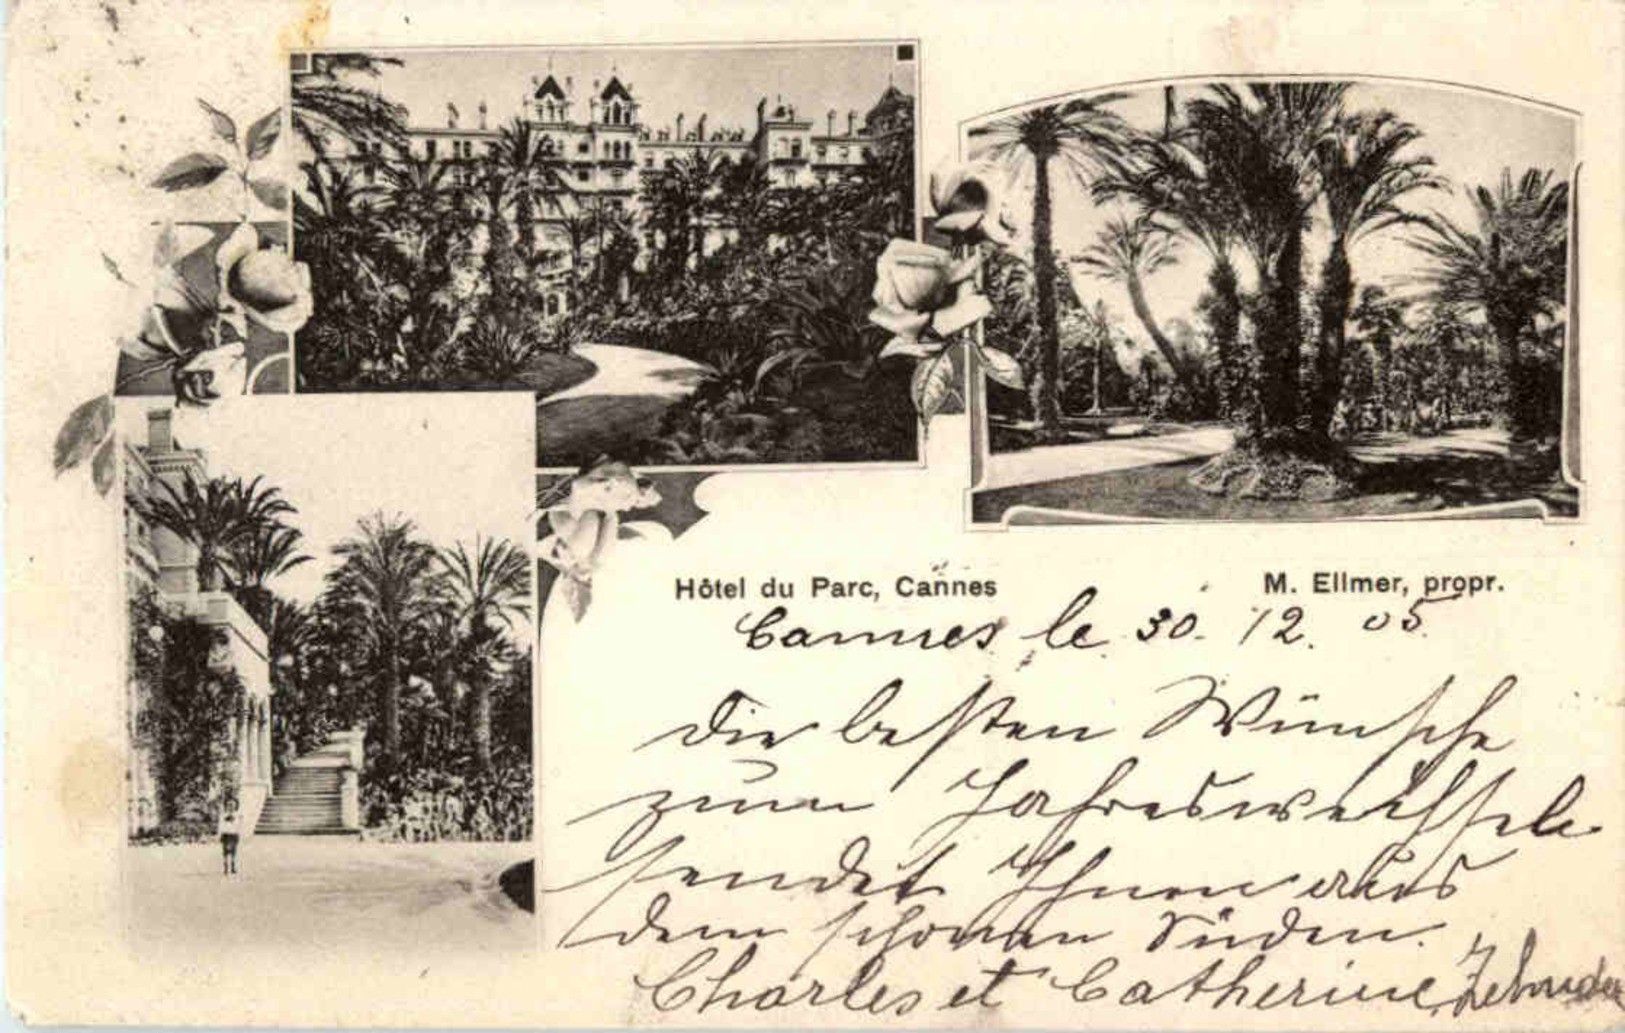 Hôtel du Parc, Cannes M. Ellmer, propr.
Cannes le 30. 12. 05.
Die besten Wünsche
zum Jahreswechsel
sendet Ihnen aus
dem schönen Süden.
Charles et Catherine